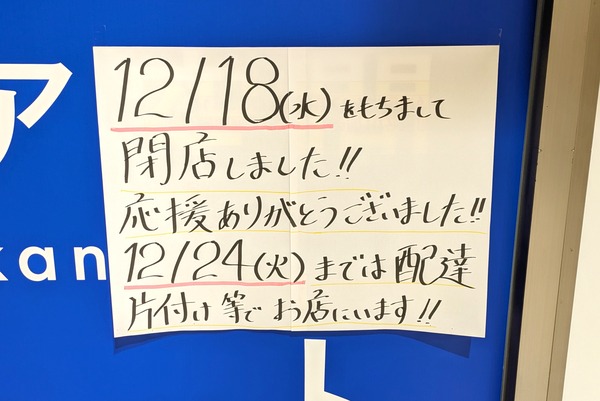 12/18(水)をもちまして
閉店しました!!
応援ありがとうございました!!
12/24(火)までは配達
片付け等でお店にいます!!
ア
kan